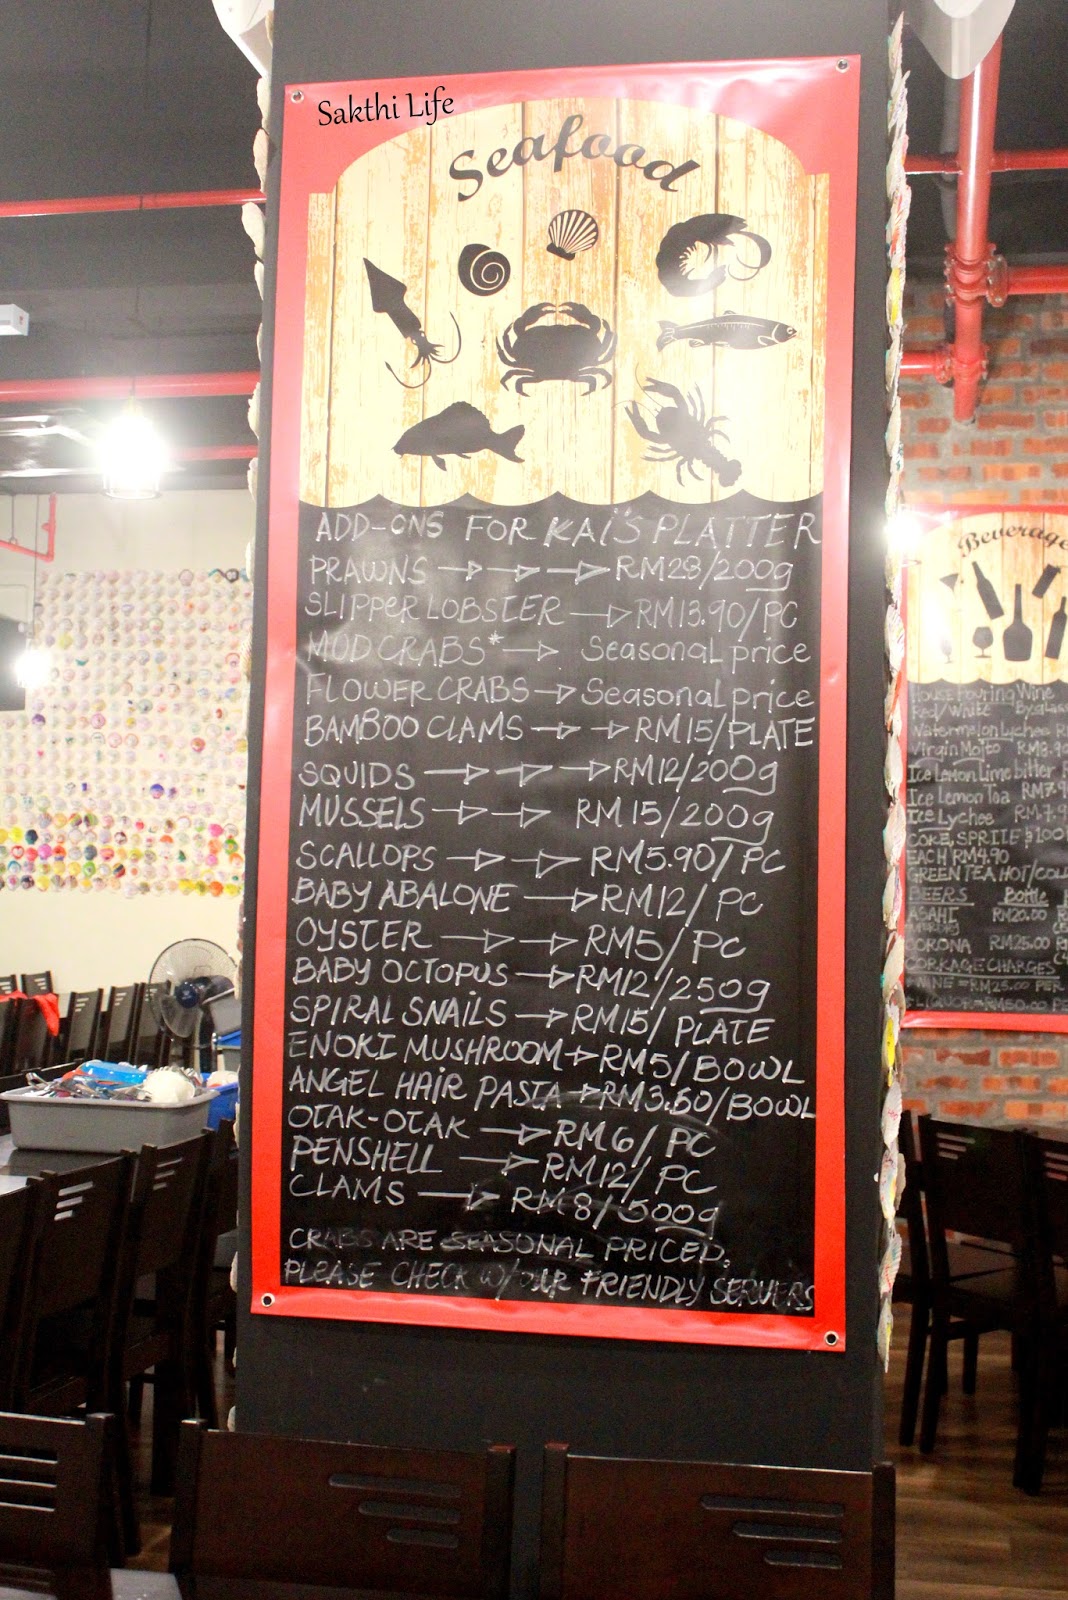 Sakthi Life
Seafood
ADD-ONS FOR KAI'S PLATTER
PRAWNS RM28/200g
SLIPPER LOBSTER RM13.90/PC
MOD CRABS* Seasonal price
FLOWER CRABS Seasonal price
BAMBOO CLAMS RM15/PLATE
SQUIDS RM12/200g
MUSSELS RM15/200g
SCALLOPS RM5.90/PC
BABY ABALONE RM12/PC
OYSTER RM5/PC
BABY OCTOPUS RM12/250g
SPIRAL SNAILS RM15/PLATE
ENOKI MUSHROOM RM5/BOWL
ANGEL HAIR PASTA RM3.50/BOWL
OTAK-OTAK RM6/PC
PENSHELL RM12/PC
CLAMS RM8/500g
CRABS ARE SEASONAL PRICED.
PLEASE CHECK W/ OUR FRIENDLY SERVERS
Beverage
House Pouring Wine
Red/White By glass
Watermelon Lychee
Virgin Mojito
Ice Lemon Lime bitter
Ice Lemon Tea RM7.9
Ice Lychee RM7.9
COKE, SPRITE & 100
EACH RM4.90
GREEN TEA HOT/COL
BEERS Bottle
ASAHI RM20.00
CORONA RM25.00
CORKAGE CHARGES
WINE = RM25.00 PER
LIQUOR = RM50.00 PE